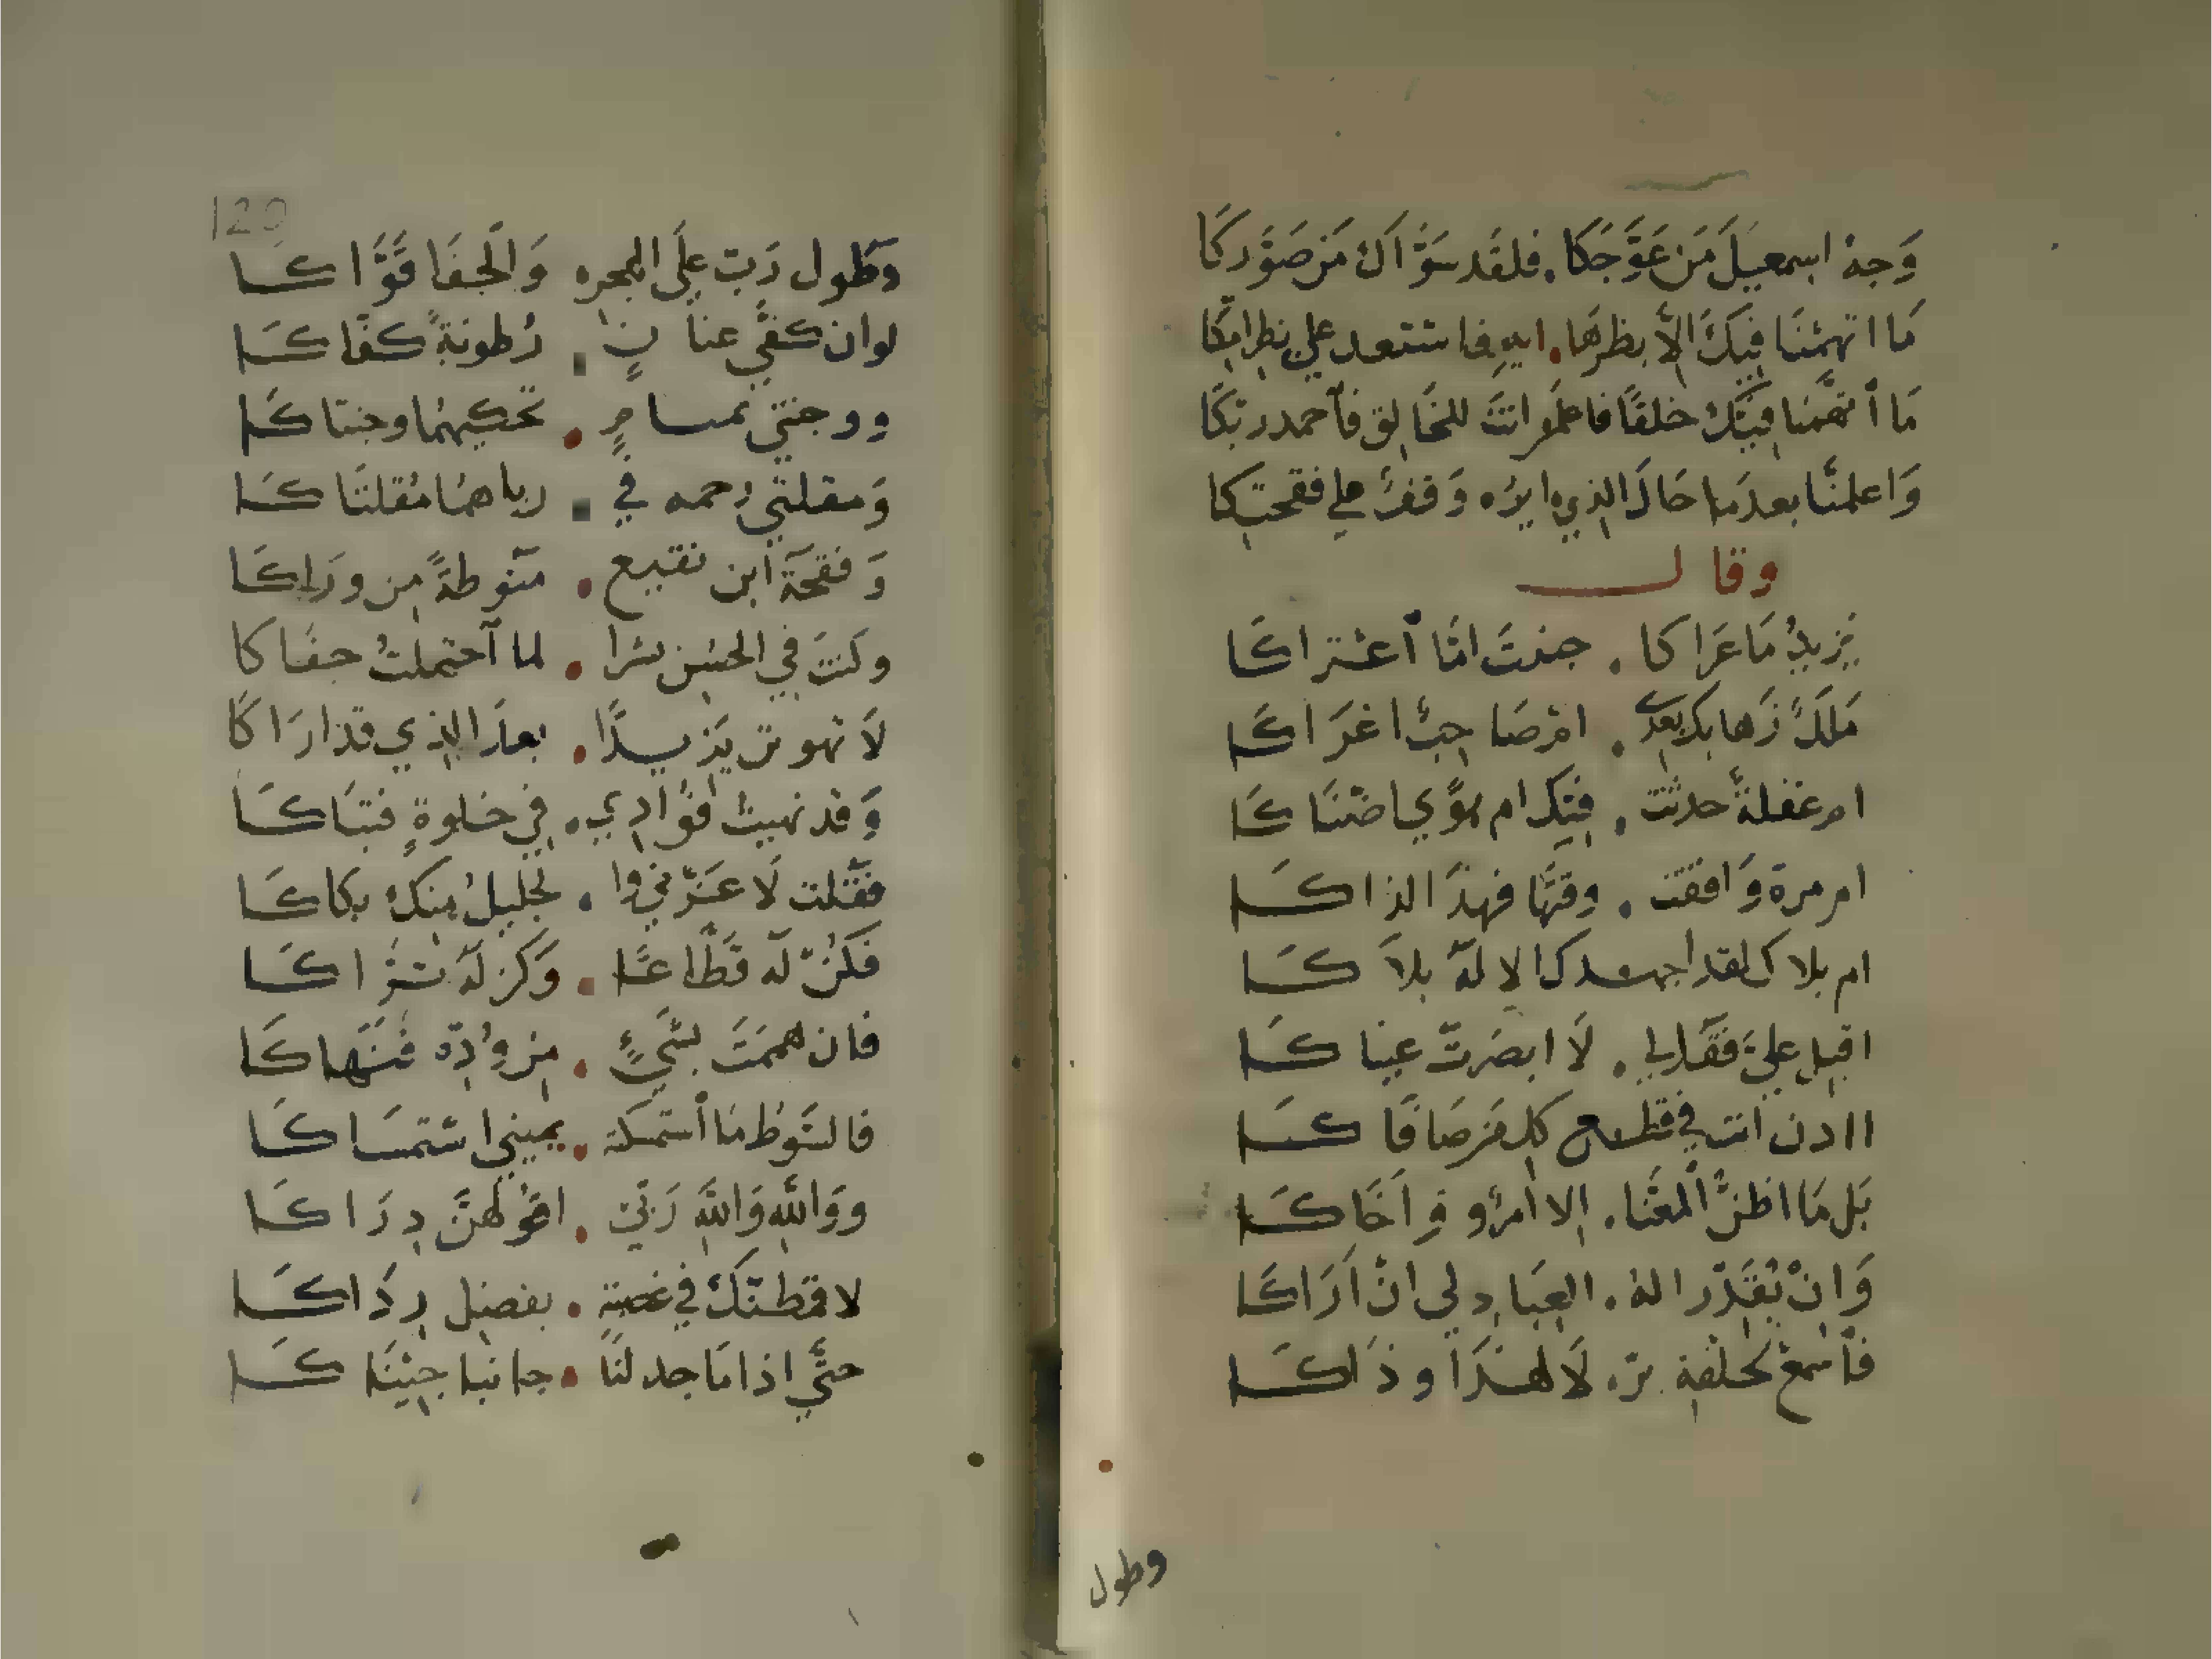 وَجهُ اسمعيلَ مَن عَوَّجَكا . فلقَد سَوَّاكَ مَن صَوَّرَكَا
مَا اتهمْنَا فيكَ الأَّ بظرهَا . ايهِ فاستعد علي بظر امِّكا
مَا أتهَّمنا فيكَ خلقًا فاعلمُ انتَ للخَالِق فأحمد ربّكَا
وَاعلمنَّا بعدَما حَالَ الذي ايره وَقفٌ علي فقحتيكا
وقال
يَزيدُ مَا عَرَاكا . جننتَ امَّا أعتراكَا
مَلَكٌ زَهَا بكَ بعدِي . امْ صَاحِبٌ اغرَاكَا
ام غفلةٌ حدثت . فيكَ ام هوًي اضنَاكَا
ام مرة وَافقت . وقتَّا فهذَا الذاكَا
ام بلاك لقد اجهدك الالهّ بلاَكَا
اقبل عليَّ فقَالي . لَا ابصَرتّ عيناكَا
اادن انت في قلع كل من صَافَاكَا
بَل مَا اظنُّ المعَنَّا . الا امرُو وَاخَاكَا
وَانْ يُقَدّر الهُ . العِبَادِ لي انْ اَرَاكَا
فأسمعْ لحلفة برّه لَا لهَذَا وذَاكَا
وطول
120
وَطَول رَبّ علَى الهجره وَالجفَا قوَّاكَا
لوان كفَّي عنانٍ . رُطوبةً كفّاكَا
ووجنتي مسامرٍ . تحكيهُما وجنتاكَا
وَمقلتي رحمه في . رباهمُا مُقلتَاكَا
وَفقحَةَ ابن نقيع . منَوطةً مِن ورَاكَا
وكنتَ في الحسُن بشرا . لما آحتملتُ جفَاكا
لَا تهوين يَزيدًا . بعدَ الذي قد ارَاكَا
وَقد نهيتُ فؤادِي . في خلوةٍ فتبَاكَا
فقَلت لَا عَزّني وا . لجَليلُ منكَ بكاكَا
فكُنّ لهَ قطَّاعًا . وَكن لهَ تَرَّاكَا
فان هممَتَ بشَيءٍ . مِن وُدّهِ فنَهَاكَا
فالسَّوطُ مَا أستمسكَت . يميني استمسَاكَا
ووَاللهِ وَاللهَّ رَبّي . اقوُلهنَّ دِرَاكَا
لا قطعنّكَ في غيبة . بفضل رِدَاكَا
حتَّي اذا مَا جد لنَا . جانبا جيْنَاكَا